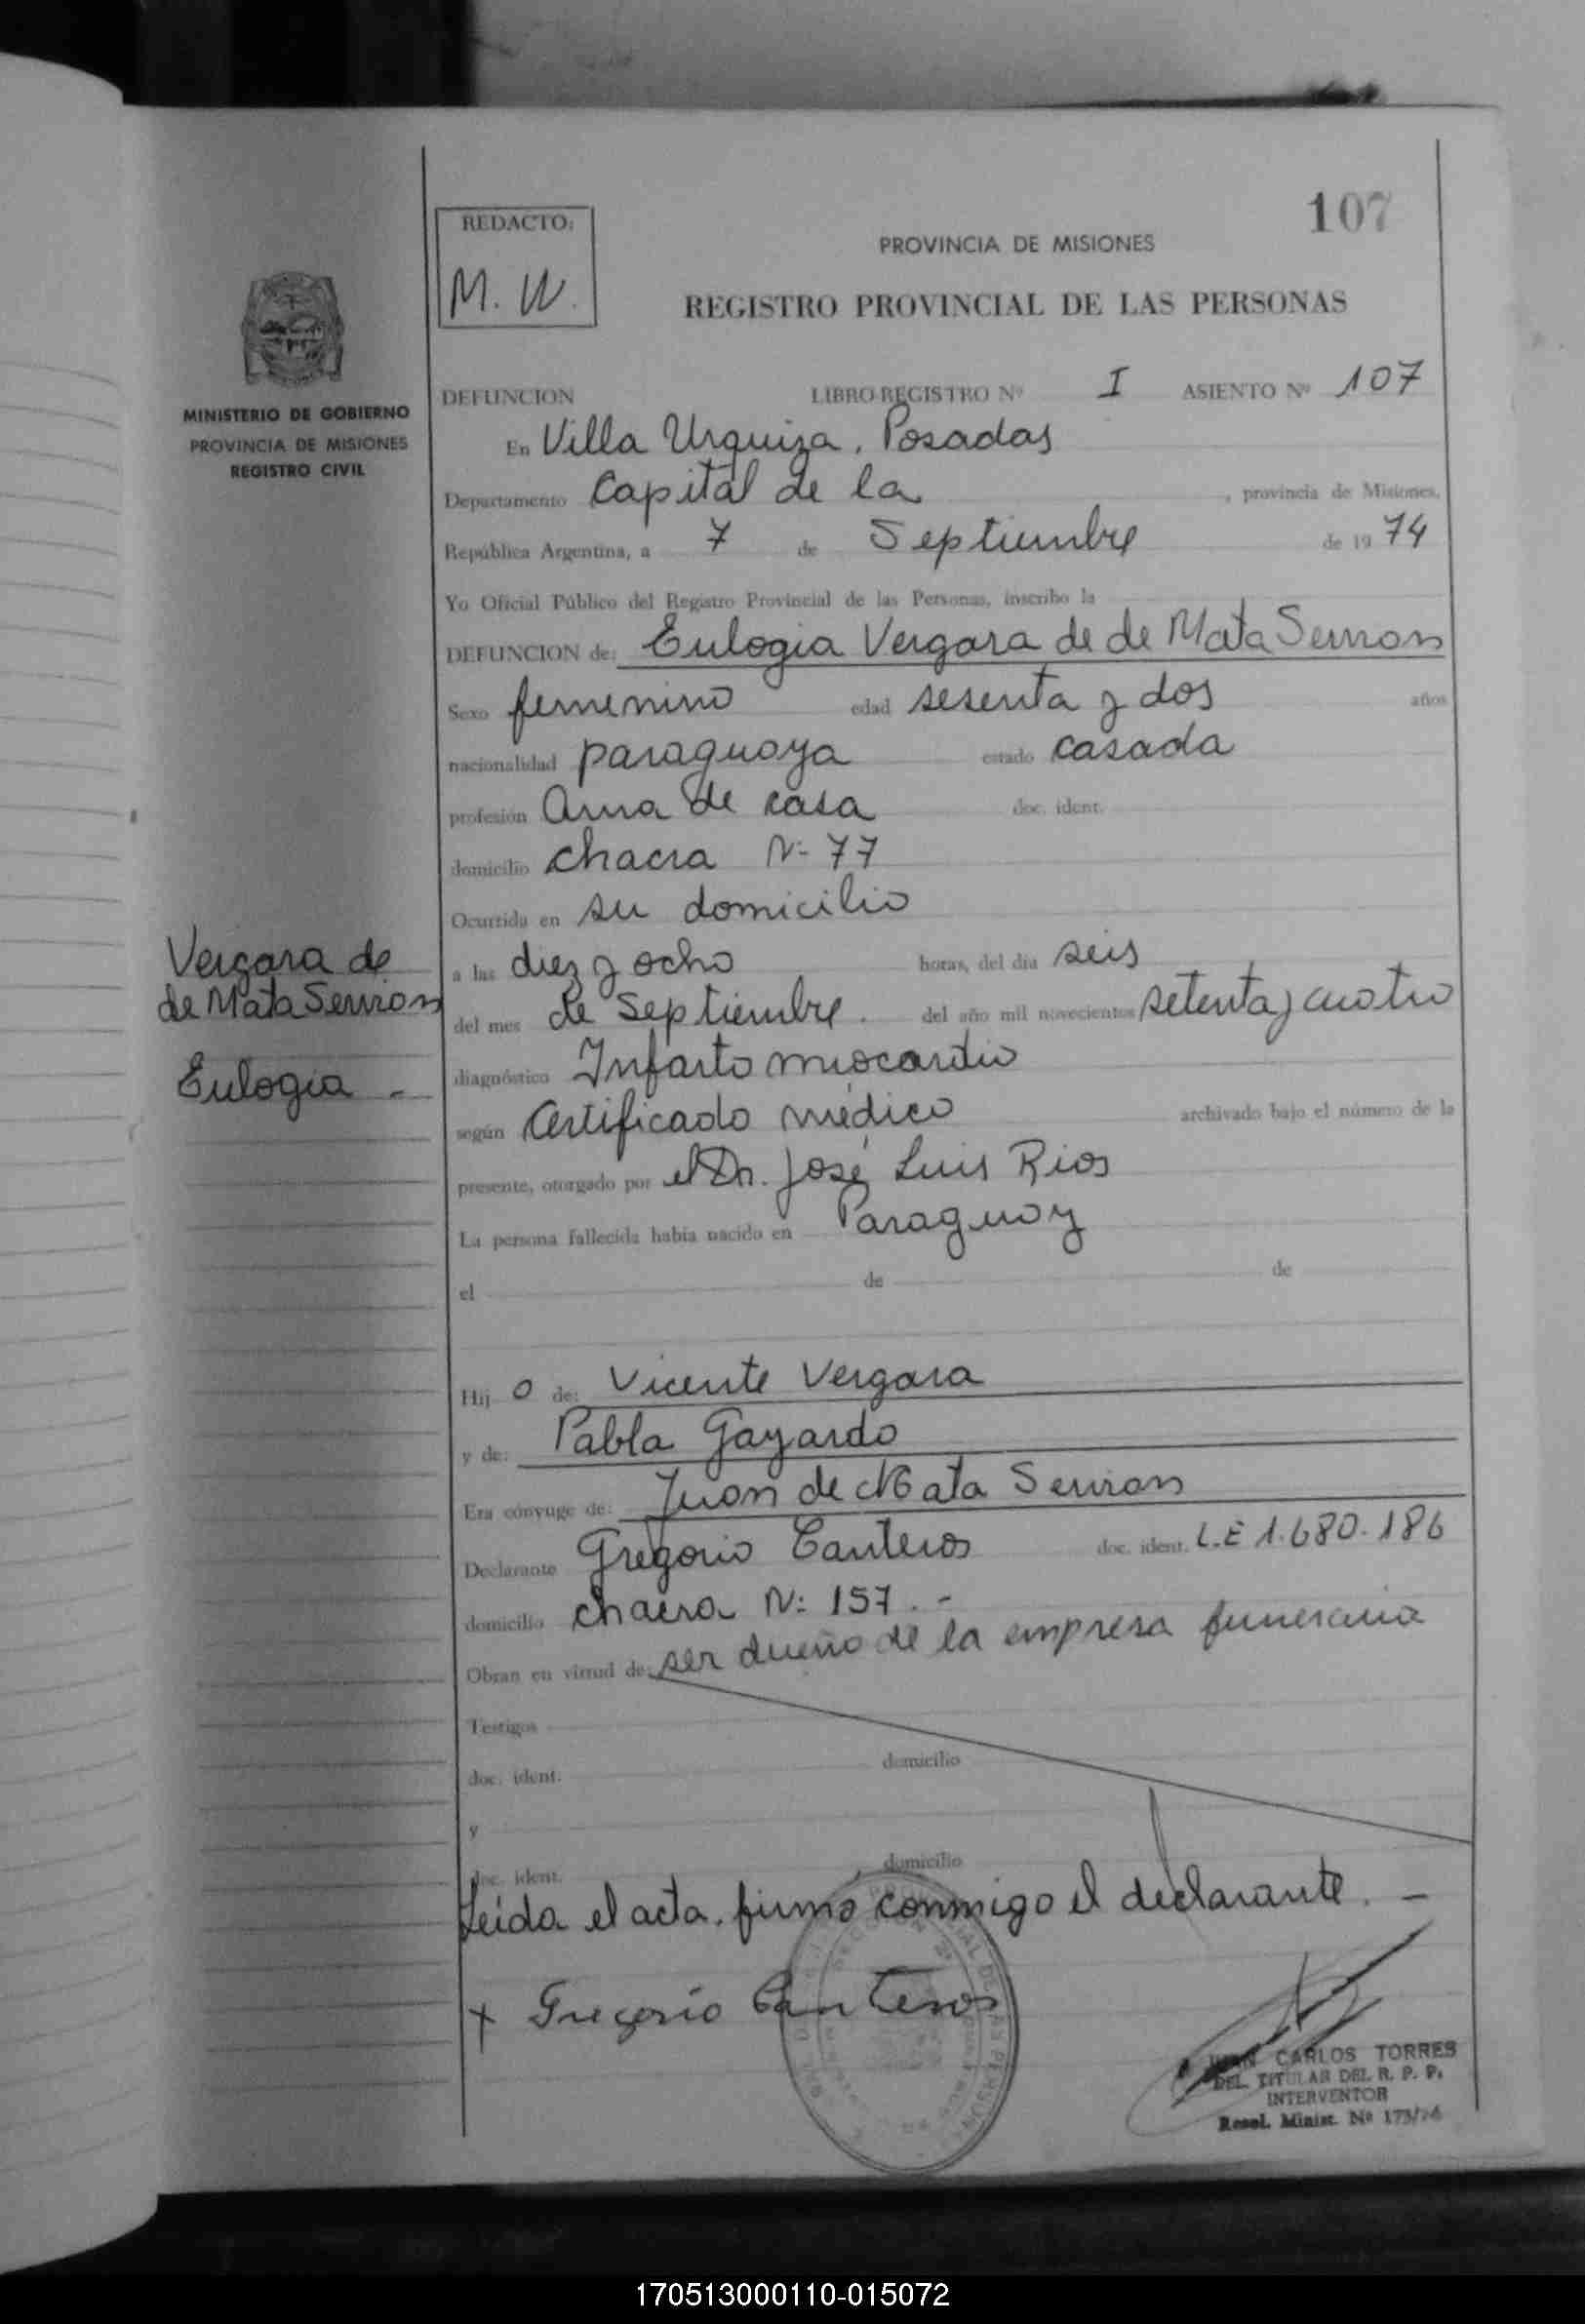 107
REDACTO:
M. W.
PROVINCIA DE MISIONES
REGISTRO PROVINCIAL DE LAS PERSONAS
MINISTERIO DE GOBIERNO
PROVINCIA DE MISIONES
REGISTRO CIVIL
DEFUNCION LIBRO-REGISTRO Nº I ASIENTO Nº 107
En Villa Urquiza, Posadas
Departamento Capital de la , provincia de Misiones,
República Argentina, a 7 de Septiembre de 19 74
Yo Oficial Público del Registro Provincial de las Personas, inscribo la
DEFUNCION de: Eulogia Vergara de de Mata Servian
Sexo femenino edad sesenta y dos años
nacionalidad paraguaya estado casada
profesión Ama de casa doc. ident.
domicilio chacra Nº 77
Ocurrida en su domicilio
a las diez y ocho horas, del día seis
del mes de Septiembre. del año mil novecientos setenta y cuatro
diagnóstico Infarto miocardio
según Certificado médico archivado bajo el número de la
presente, otorgado por el Dr. José Luis Rios
La persona fallecida había nacido en Paraguay
el de de
Vergara de
de Mata Servian
Eulogia -
Hij o de: Vicente Vergara
y de: Pabla Gayardo
Era cónyuge de: Juan de Mata Servian
Declarante Gregorio Canteros doc. ident. L.E 1.680.186
domicilio chacra Nº 157.-
Obran en virtud de: ser dueño de la empresa funeraria
Testigos
doc. ident. domicilio
y
doc. ident. domicilio
Leida el acta, firma conmigo el declarante. -
+ Gregorio Canteros
JUAN CARLOS TORRES
DEL. TITULAR DEL R. P. P.
INTERVENTOR
Resol. Minist. Nº 173/74
170513000110-015072